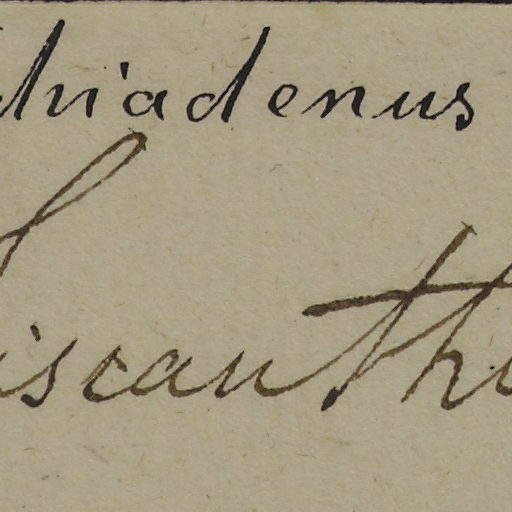 driadenus
iscanth